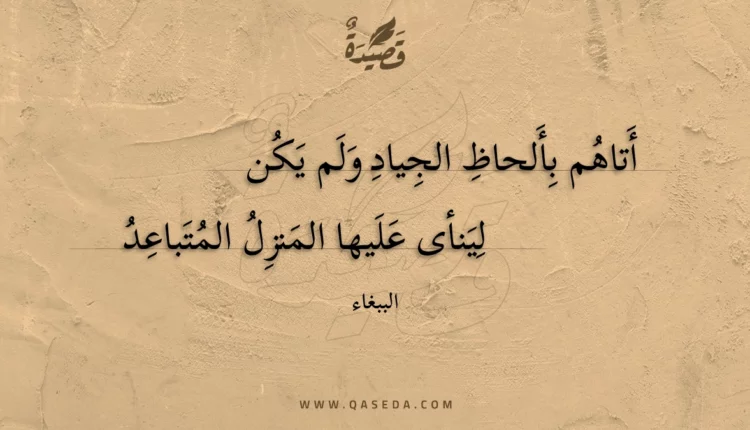 قَصِيدَةٌ
أَتاهُم بِأَلحاظِ الجِيادِ وَلَم يَكُن
لِيَنأى عَلَيها المَنزِلُ المُتَباعِدُ
الببغاء
WWW.QASEDA.COM